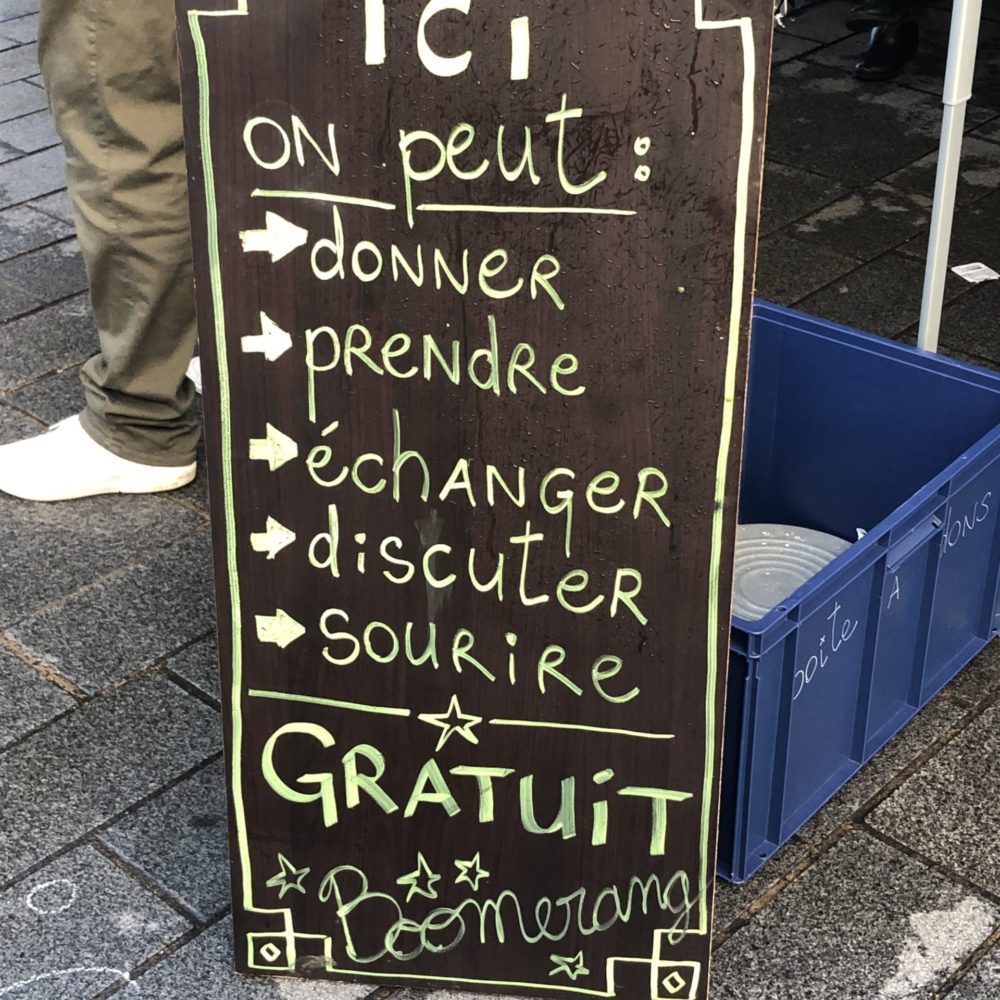 ICI
ON peut :
donner
prendre
échanger
discuter
sourire
GRATUIT
Boomerang
boite A dons